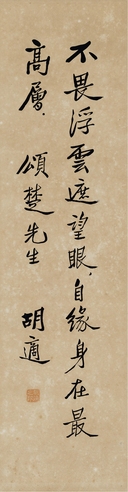 不畏浮雲遮望眼，自緣身在最
高層．　頌楚先生
胡適